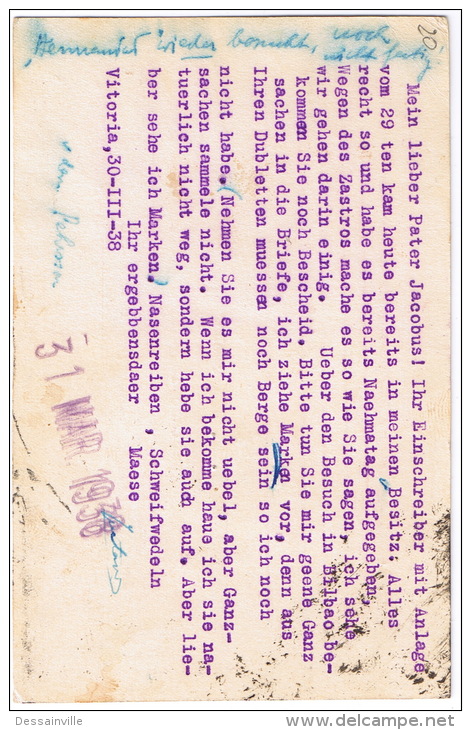 20
"Hermandad" wieder besucht, noch
nicht fertig
Mein lieber Pater Jacobus! Ihr Einschreiber mit Anlage
vom 29 ten kam heute bereits in meinen Besitz. Alles
recht so und habe es bereits Naehmatag aufgegeben,
Wegen des Zastros mache es so wie Sie sagen, ich sehe
wir gehen darin einig. Ueber den Besuch in Bilbao be-
kommen Sie noch Bescheid. Bitte tun Sie mir geene Ganz
sachen in die Briefe, ich ziehe Marken vor, denn aus
Ihren Dubletten muessen noch Berge sein so ich noch
nicht habe. (Nehmen Sie es mir nicht uebel, aber Ganz-
sachen sammele nicht. Wenn ich bekomme haue ich sie na-
tuerlich nicht weg, sondern hebe sie auch auf. Aber lie-
ber sehe ich Marken.) Nasenreiben, Schweifwedeln
Ihr ergebbensdaer Maese
Vitoria,30-III-38
31 MAR 1938
Dessainville
delcampe.net